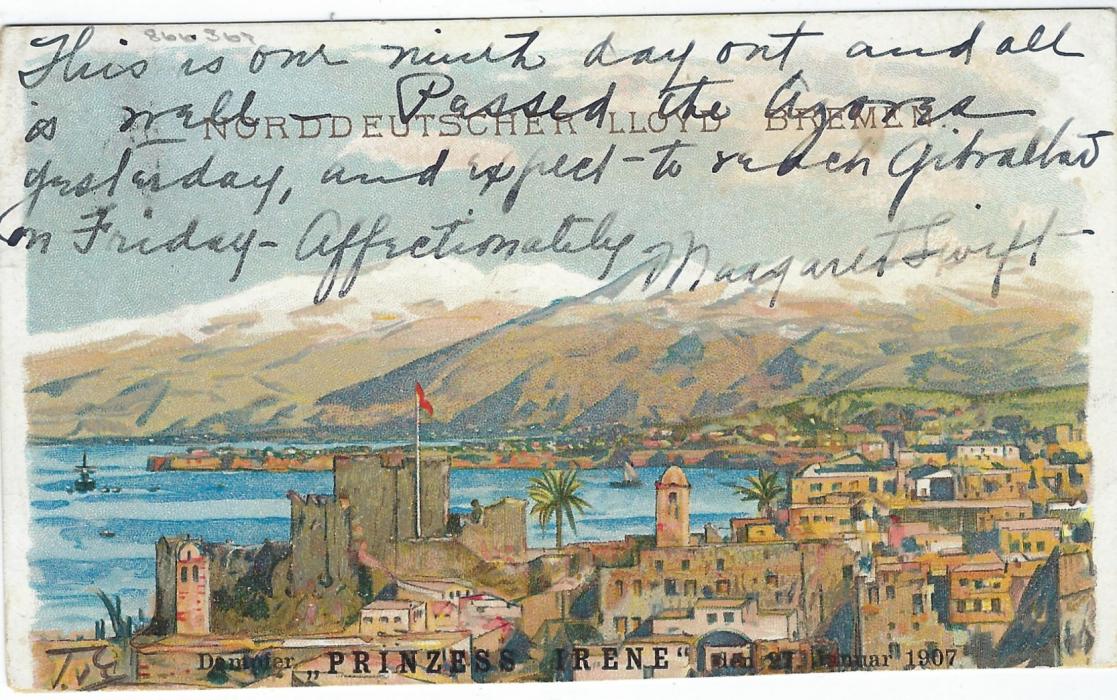 866 367
This is our ninth day out and all
is well – Passed the Azores
NORDDEUTSCHER LLOYD BREMEN.
yesterday, and expect to reach Gibraltar
on Friday – Affectionately Margaret Swift –
T.v.E
Dampfer „PRINZESS IRENE“ den 27. Januar 1907